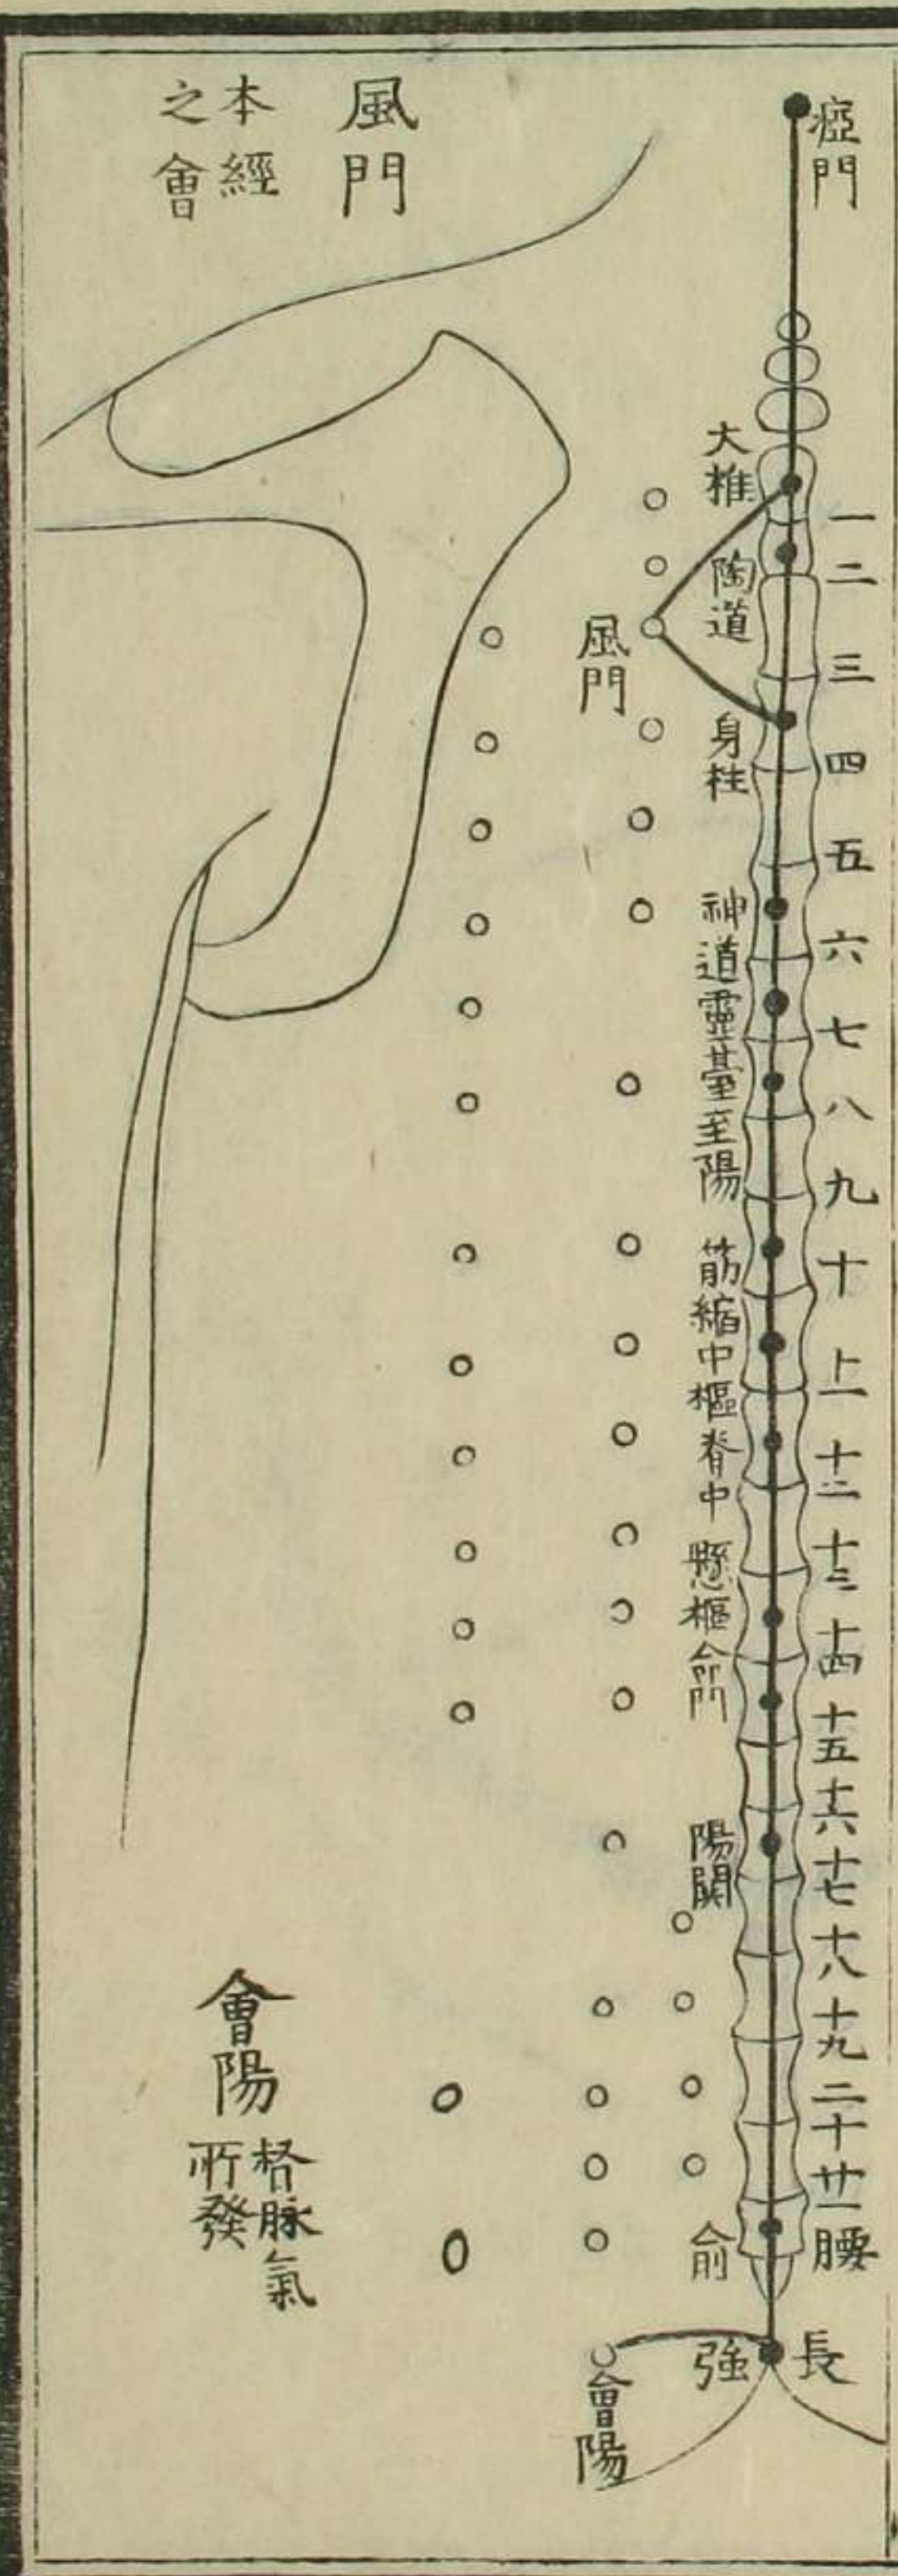 瘂門
一
二
三
四
五
六
七
八
九
十
十一
十二
十三
十四
十五
十六
十七
十八
十九
二十
廿一
腰俞
長強
大椎
陶道
身柱
神道
靈臺
至陽
筋縮
中樞
脊中
懸樞
命門
陽関
風門
會陽
風門
本經
之會
會陽
脉氣
所發